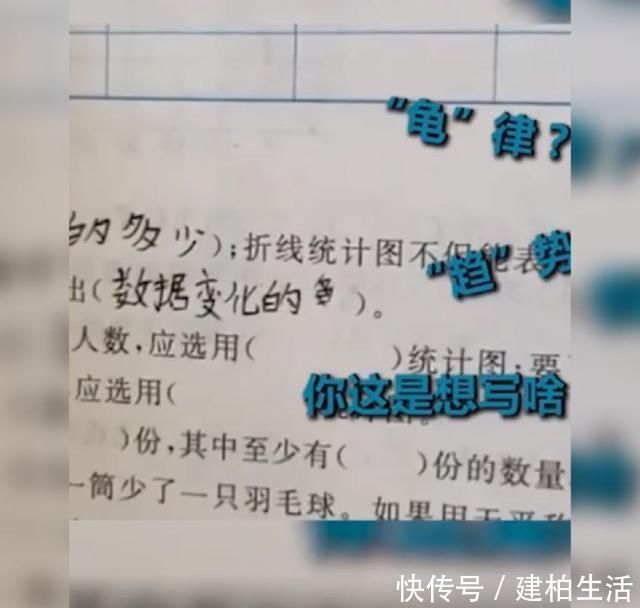 "龟"律？
的多少)；折线统计图不但能表
"趋"势
出(数据变化的)。
人数，应选用( )统计图；要
应选用(
你这是想写啥
)份，其中至少有( )份的数量
一筒少了一只羽毛球。如果用天平称
快传号 / 建柏生活